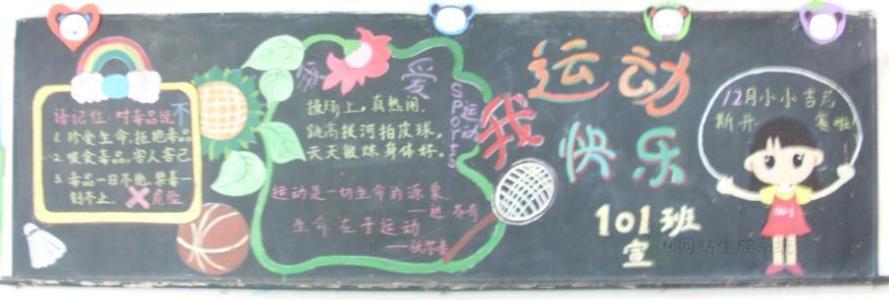 请记住:对毒品说不
1. 珍爱生命,拒绝毒品
2. 吸食毒品,害人害己
3. 毒品一日不绝,禁毒一
刻不止。
危险
爱
SPORTS
运动
操场上,真热闹,
跳高拔河拍皮球,
天天锻炼身体好。
运动是一切生命的源泉
生命在于运动
我
运动
快乐
101班
宣
12月小小吉尼
斯开 赛啦
网站生成系统